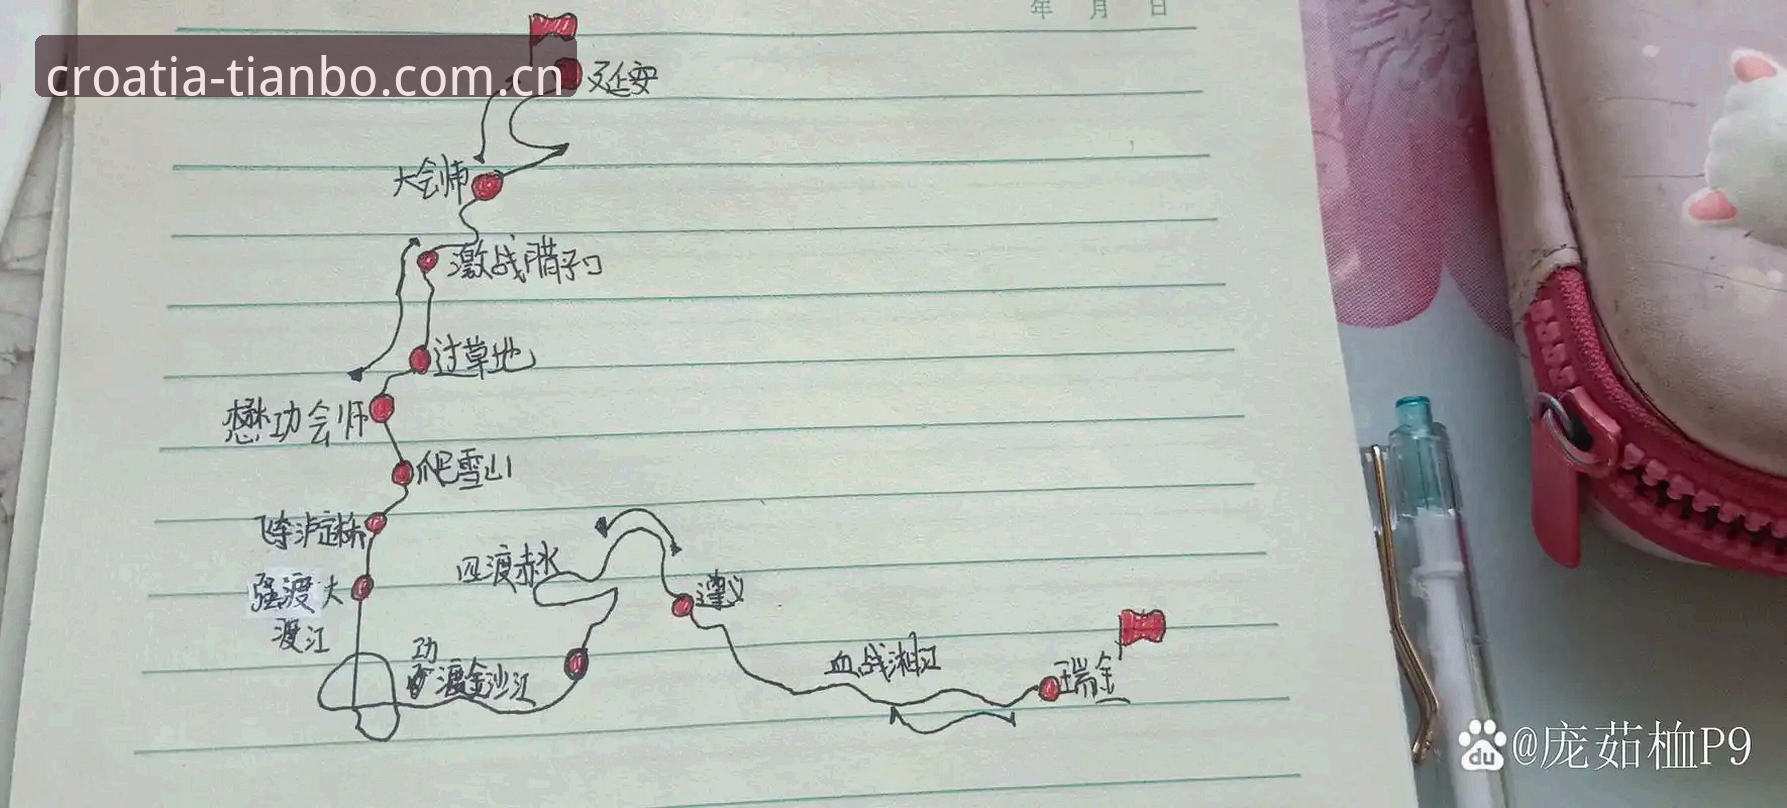 年 月 日
croatia-tianbo.com.cn
延安
大会师
激战腊子口
过草地
懋功会师
爬雪山
飞夺泸定桥
强渡大
渡江
四渡赤水
遵义
功
渡金沙江
血战湘江
瑞金
@庞茹桖P9
du